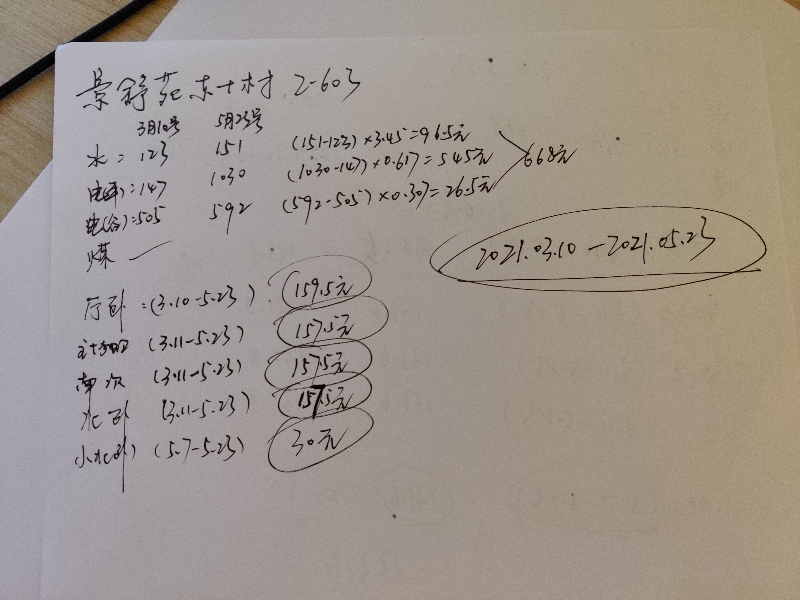 景舒苑东十村 2-603
3月10号 5月23号
水: 123 151 (151-123)×3.45=96.5元
电(平):147 1030 (1030-147)×0.617=545元 668元
电(谷):505 592 (592-505)×0.307=26.5元
煤 —
2021.03.10-2021.05.23
厅卧:(3.10-5.23) 159.5元
(3.11-5.23) 157.5元
南次 (3.11-5.23) 157.5元
北卧 (3.11-5.23) 157.5元
小北卧 (5.7-5.23) 30元